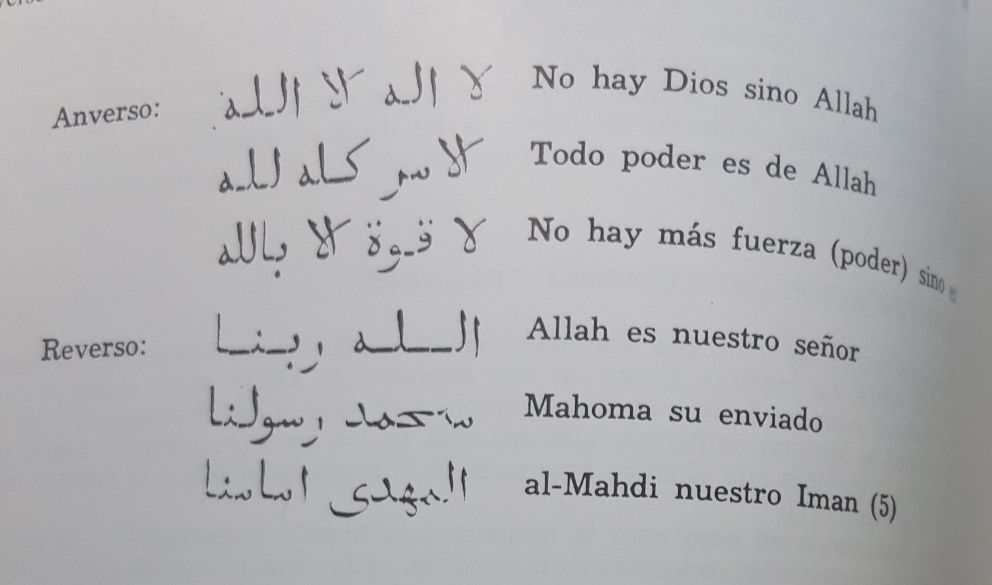 Anverso: لا اله الا الله No hay Dios sino Allah
الامر كله لله Todo poder es de Allah
لا قوة الا بالله No hay más fuerza (poder) sino
Reverso: الله ربنا Allah es nuestro señor
محمد رسولنا Mahoma su enviado
المهدى امامنا al-Mahdi nuestro Iman (5)